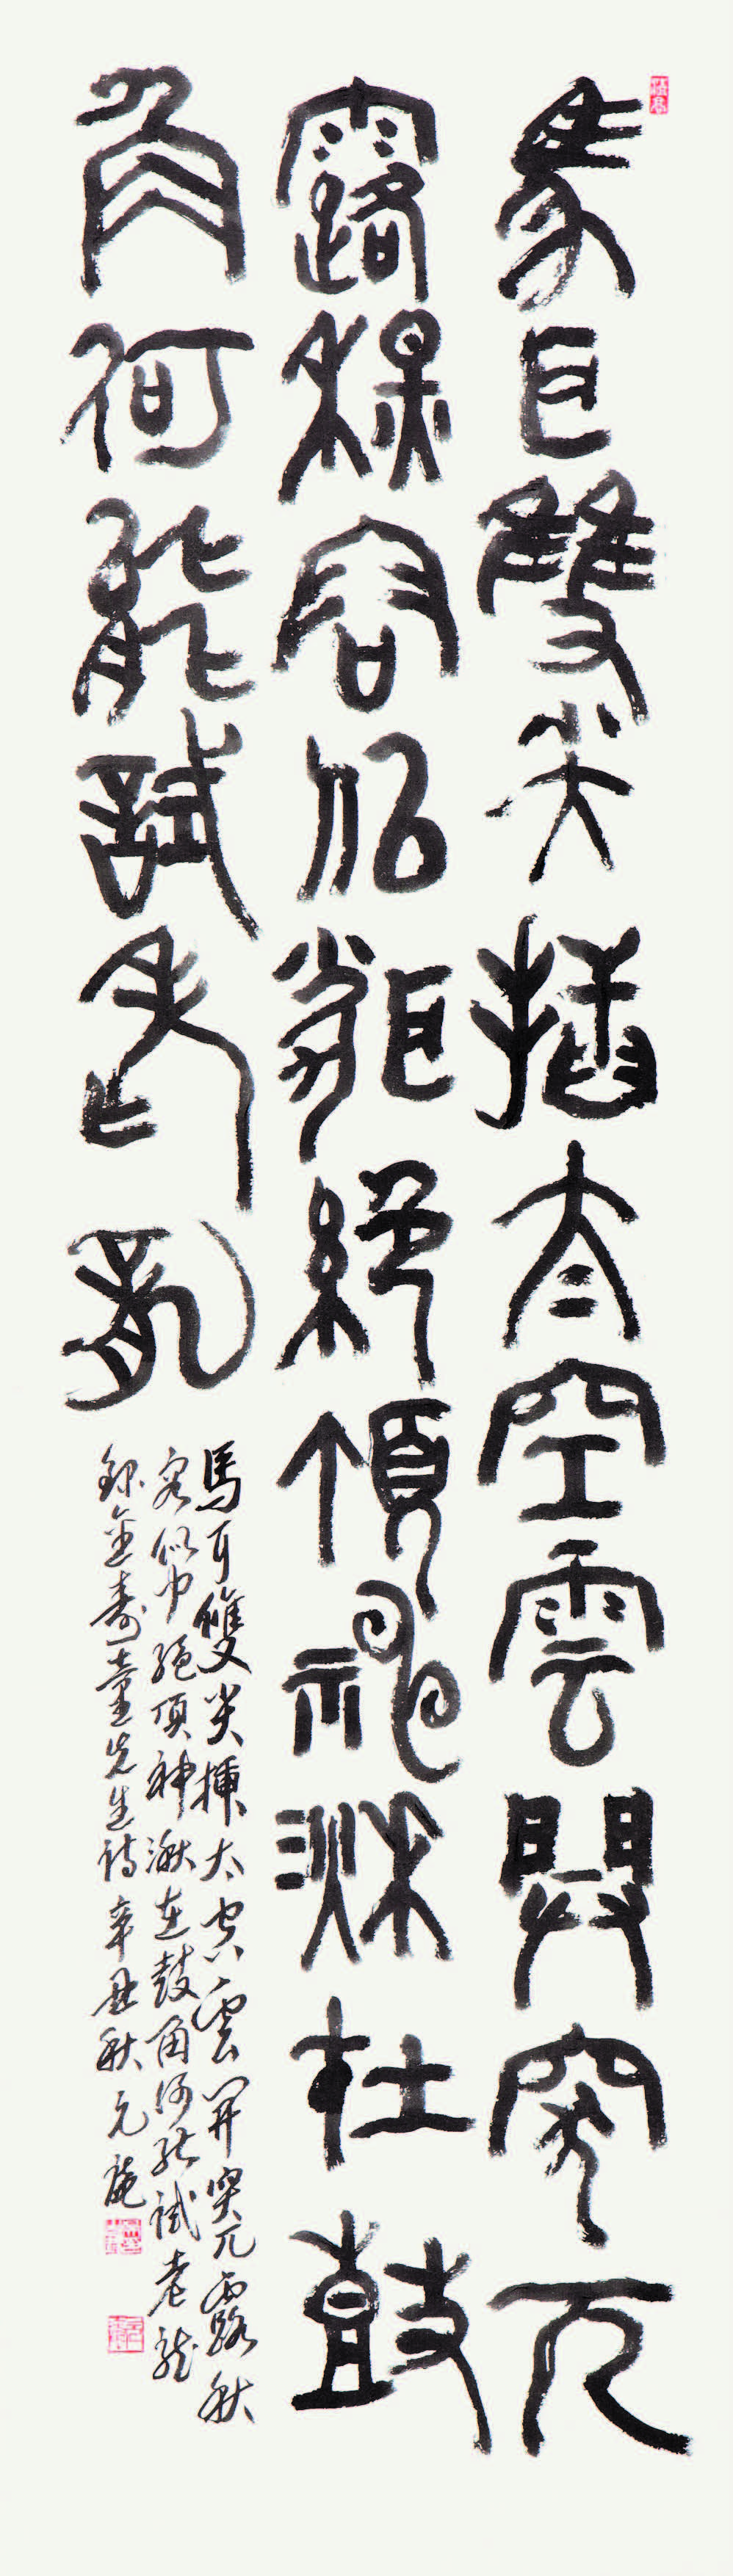 馬耳雙尖插太空雲開突兀
露秋容似聞絕頂神湫在鼓
角何能試老龍
馬耳雙尖揷太空雲開突兀露秋
容似聞絕頂神湫在鼓角何能試老龍
錄金壽童先生詩辛丑秋元庵